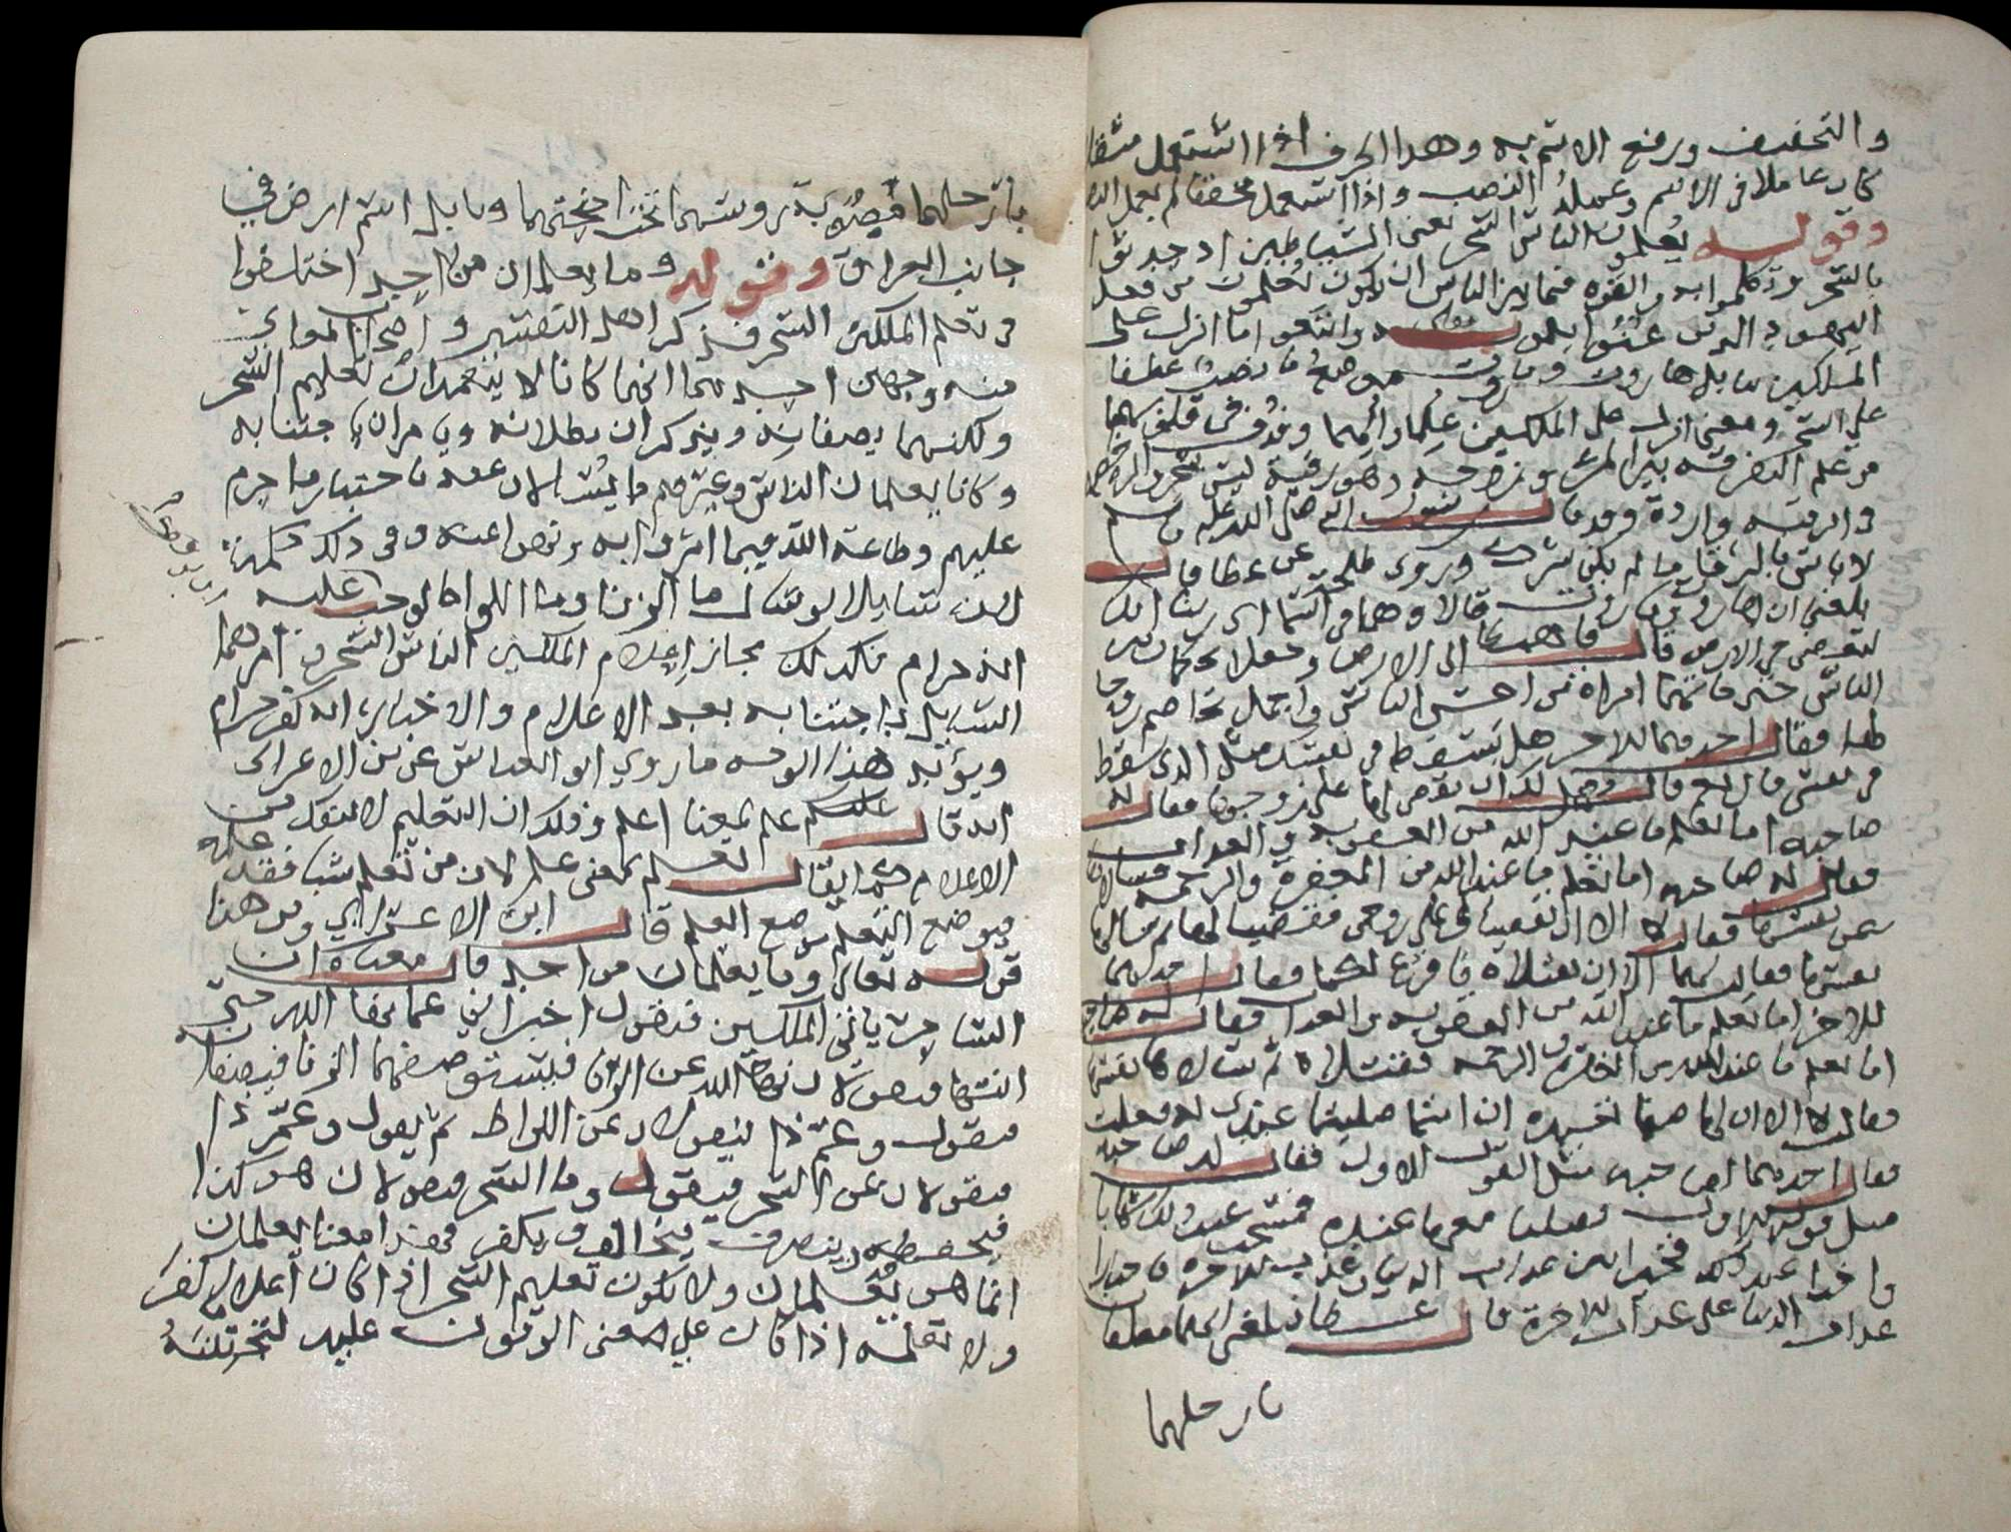 والتخفيف ورفع الاسم به وهذا الحرف اذا استعمل مثقلا
كان عاملا في الاسم وعمله النصب واذا استعمل مخففا لم يعمل
وقوله يعلمون الناس السحر يعني الشياطين
بالسحر وتكلموا به فيما بين الناس ان يكون يعلمون من فعل
اليهود الذين عنوا بقوله واتبعوا اما انزل على
الملكين ببابل هاروت وماروت موضع ما نصب عطفا
على السحر ومعنى انزل على الملكين علما والهما وقذف في قلوبهما
من علم التفرقة بين المرء وزوجه وهو رقية ليس بسحر
في الرقية واردة وقد قال رسول الله صلى الله عليه وسلم
لا باس بالرقا ما لم يكن شرك وروى طلحة عن عطا قال
بلغني ان هاروت وماروت قالا وهما في السما اى ربنا انك
لتعصى في الارض قال فاهبطا الى الارض وجعلا يحكمان بين
الناس حتى فاتتهما امراة من احسن الناس واجمل تخاصم زوجا
لها فقال احدهما للاخر هل سقط في نفسك مثل الذي سقط
في نفسي قال نعم قال وهل لك ان نقضي لها على زوجها فقال له
صاحبه اما تعلم ما عند الله من العقوبة والعذاب
فقال له صاحبه اما تعلم ما عند الله من المغفرة والرحمة فسالاها
عن نفسها فقالت لا الا ان تقضيا لي على زوجي فقضيا لها ثم سالاها
نفسها فقالت لهما الا ان تقتلاه فافرغ لكما فقال احدهما
للاخر اما تعلم ما عند الله من العقوبة والعذاب فقال له صاحبه
اما تعلم ما عند الله من المغفرة والرحمة فقتلاه ثم سالاها نفسها
فقالت لا الا ان لي صنما نعبده ان انتما صليتما عنده لي فعلت
فقال احدهما لصاحبه مثل القول الاول فقال له صاحبه
مثل قوله الاول فصليا معها عنده فمسخت عند ذلك شهابا
واخذا عند ذلك فخيرا بين عذاب الدنيا وعذاب الاخرة فاختارا
عذاب الدنيا على عذاب الاخرة قال عطا بلغني انهما معلقان
بارجلهما
بارجلهما مصوبة رووسهما تحت اجنحتهما وبابل اسم ارض في
جانب العراق وقوله وما يعلمان من احد اختلفوا
في تعلم الملكين السحر فذكر اهل التفسير واصحاب المعاني
فيه وجهين احدهما انهما كانا لا يتعمدان تعليم السحر
ولكنهما يصفانه ويذكران بطلانه ويامران باجتنابه
وكانا يعلمان الناس وغيرهم ما يسالان عنه باختبار ما حرم
عليهم وطاعة الله فيما امروا به ونهوا عنه وفي ذلك حكمة
لان سايلا لو سال ما الزنا وما اللواط لوجب عليه
انه حرام فكذلك مجاز اعلام الملكين الناس السحر وامرهما
السايل باجتنابه بعد الاعلام والاخبار انه كفر حرام
ويؤيد هذا الوجه ما روي ابو العباس عن ابن الاعرابي
انه قال علم بمعنا اعلم وذلك ان التعليم لا ينفك من
الاعلام كما يقال تعلم بمعنى علم لان من تعلم شيا فقد علمه
فيوضع التعلم موضع العلم قال ابن الاعرابي ومن هذا
قوله تعالى وما يعلمان من احد قال معناه ان
الساحر ياتي الملكين فيقول اخبراني عما نها الله حتى
انتهي فيقولان نها الله عن الزنا فيستوصفهما الزنا فيصفانه
فيقول وعم ذا فيقولان عن اللواط ثم يقول وعم ذا
فيقولان عن السحر فيقول وما السحر فيقولان هو كذا
فيحفظه وينصرف فيخالف ويكفر فهذا معنا يعلمان
انما هو يعلمان ولا يكون تعليم السحر اذا كان اعلاما كفر
ولا تعلمه اذا كان على معنى الوقوف عليه لتجتنبه